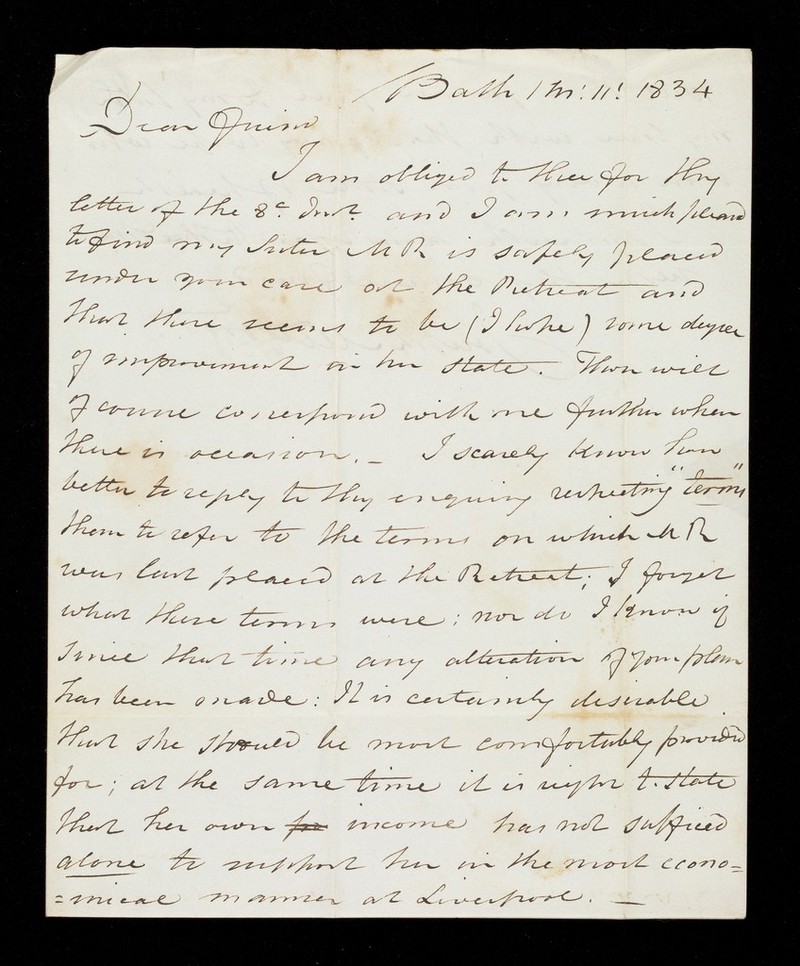 Bath 1 M: 11: 1834
Dear Friend
I am obliged to thee for thy
letter of the 8th Inst. and I am much pleased
to find my Sister MR is safely placed
under your care at the Retreat and
that there seems to be (I hope) some degree
of improvement in her state. Thou wilt
of course correspond with me further when
there is occasion. – I scarcely know how
better to reply to thy enquiry respecting "terms"
than to refer to the terms on which MR
was last placed at the Retreat; I forget
what these terms were: nor do I know if
since that time any alteration of your plan
has been made: It is certainly desirable
that she should be most comfortably provided
for; at the same time it is right to state
that her own income has not sufficed
alone to support her in the most econo=
=mical manner at Liverpool. —